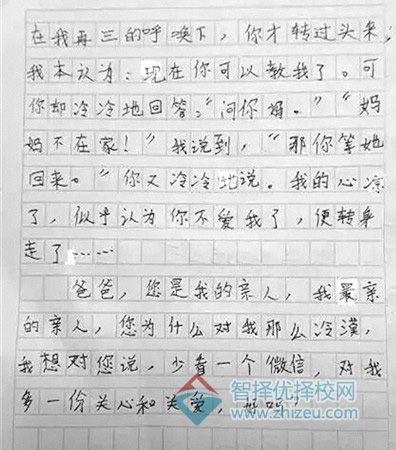 在我再三的呼唤下，你才转过头来，
我本认为：现在你可以教我了。可
你却冷冷地回答：“问你妈。”“妈
妈不在家！”我说到，“那你等她
回来。”你又冷冷地说。我的心凉
了，似乎认为你不爱我了，便转身
走了……
爸爸，您是我的亲人，我最亲
的亲人，您为什么对我那么冷漠，
我想对您说，少看一个微信，对我
多一份关心和关爱，好吗！
智择优择校网
www.zhizeu.com